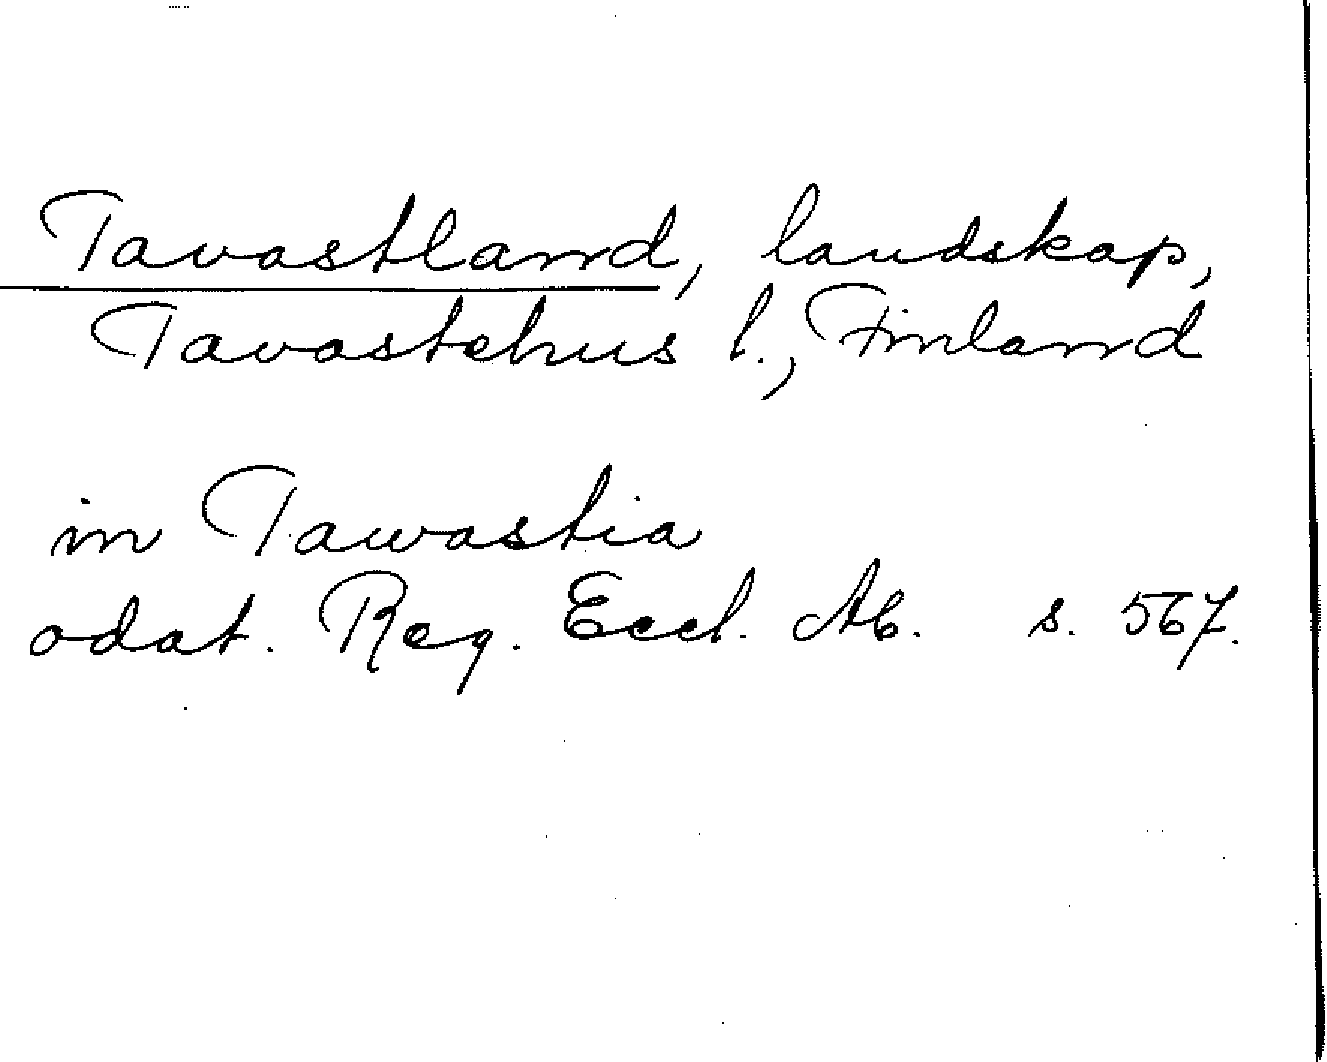 Tavastland, landskap,
Tavastehus l., Finland
in Tawastia
odat. Reg. Eccl. Ab. s. 567.